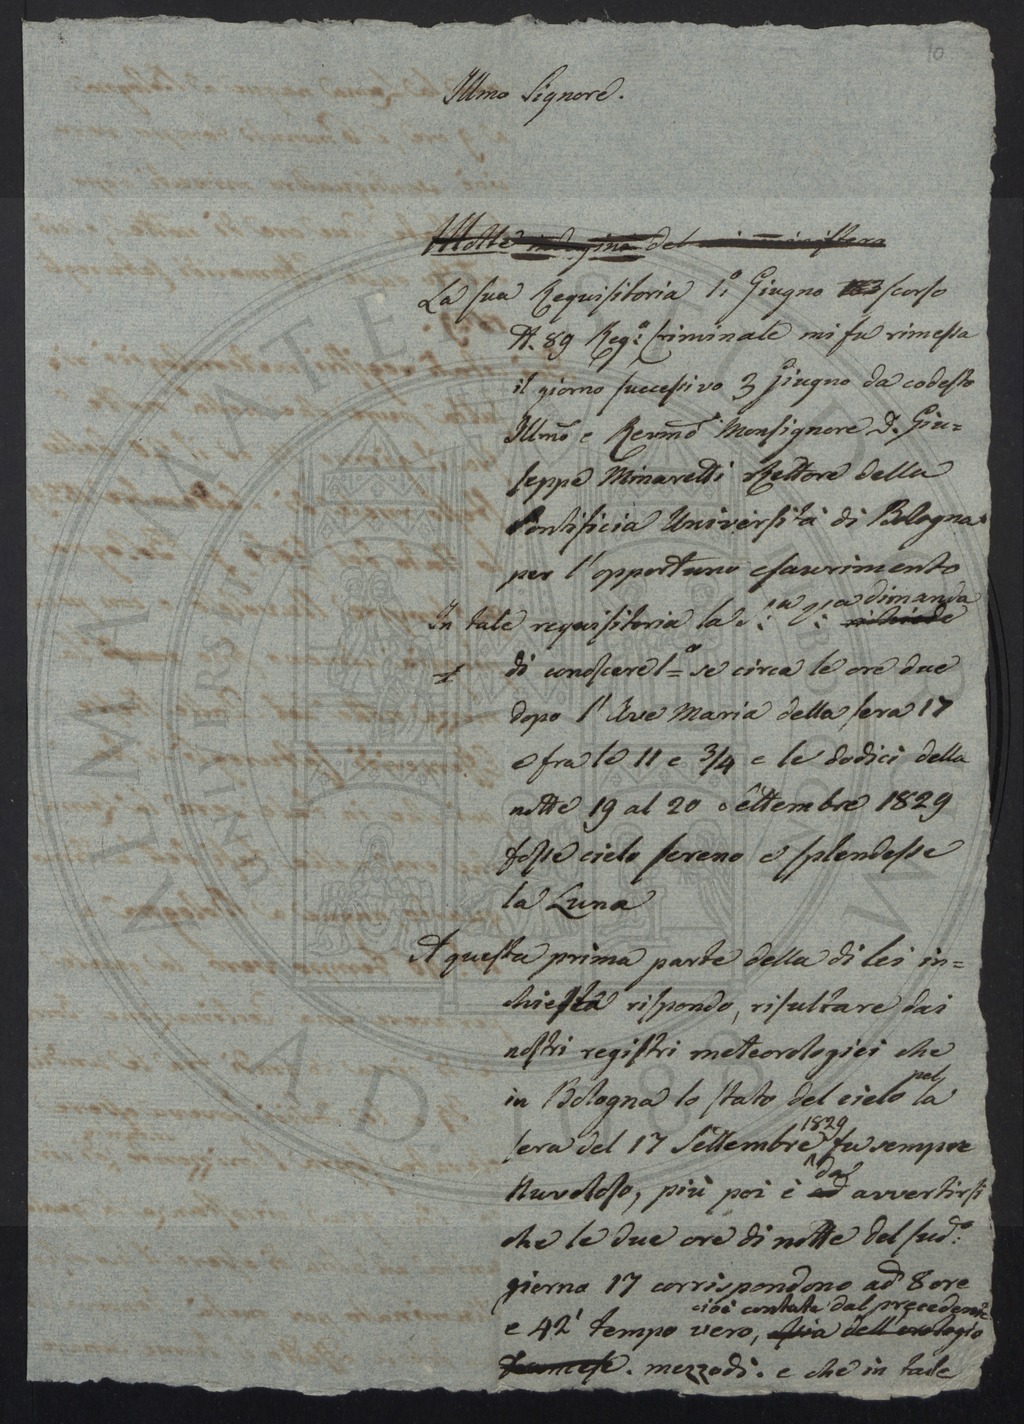 10
Illmo Signore.
Molte indagini del ministero
La sua Requisitoria 1º Giugno scorso
N. 89 Regº Criminale mi fu rimessa
il giorno successivo 3 Giugno da codesto
Illmo e Revmo Monsignore D. Giu=
seppe Minaretti Rettore della
Pontificia Università di Bologna
per l'opportuno esaurimento
In tale requisitoria la S:ª V:ª dimanda
richiede
di conoscere 1º= se circa le ore due
dopo l'Ave Maria della sera 17
e fra le 11 e 3/4 e le dodici della
notte 19 al 20 Settembre 1829
fosse cielo sereno e splendesse
la Luna
A questa prima parte della di lei in=
chiesta rispondo, risultare dai
nostri registri meteorologici che
in Bologna lo stato del cielo nella
sera del 17 Settembre 1829 fu sempre
Nuvoloso, più poi è da avvertirsi
che le due ore di notte del sudº:
giorno 17 corrispondono ad 8 ore
cioè contate dal precedente
e 42' tempo vero, ossia dell'orologio
Francese. mezzodì. e che in tale